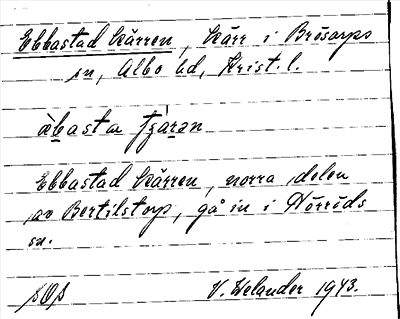 Ebbastad Kärren, Kärr i Brösarps
sn, Albo hd, Krist. l.
àbasta tʃarən
Ebbastad Kärren, norra delen
av Bertilstorp, gå in i Hörröds
sn.
SOS V. Welander 1943.